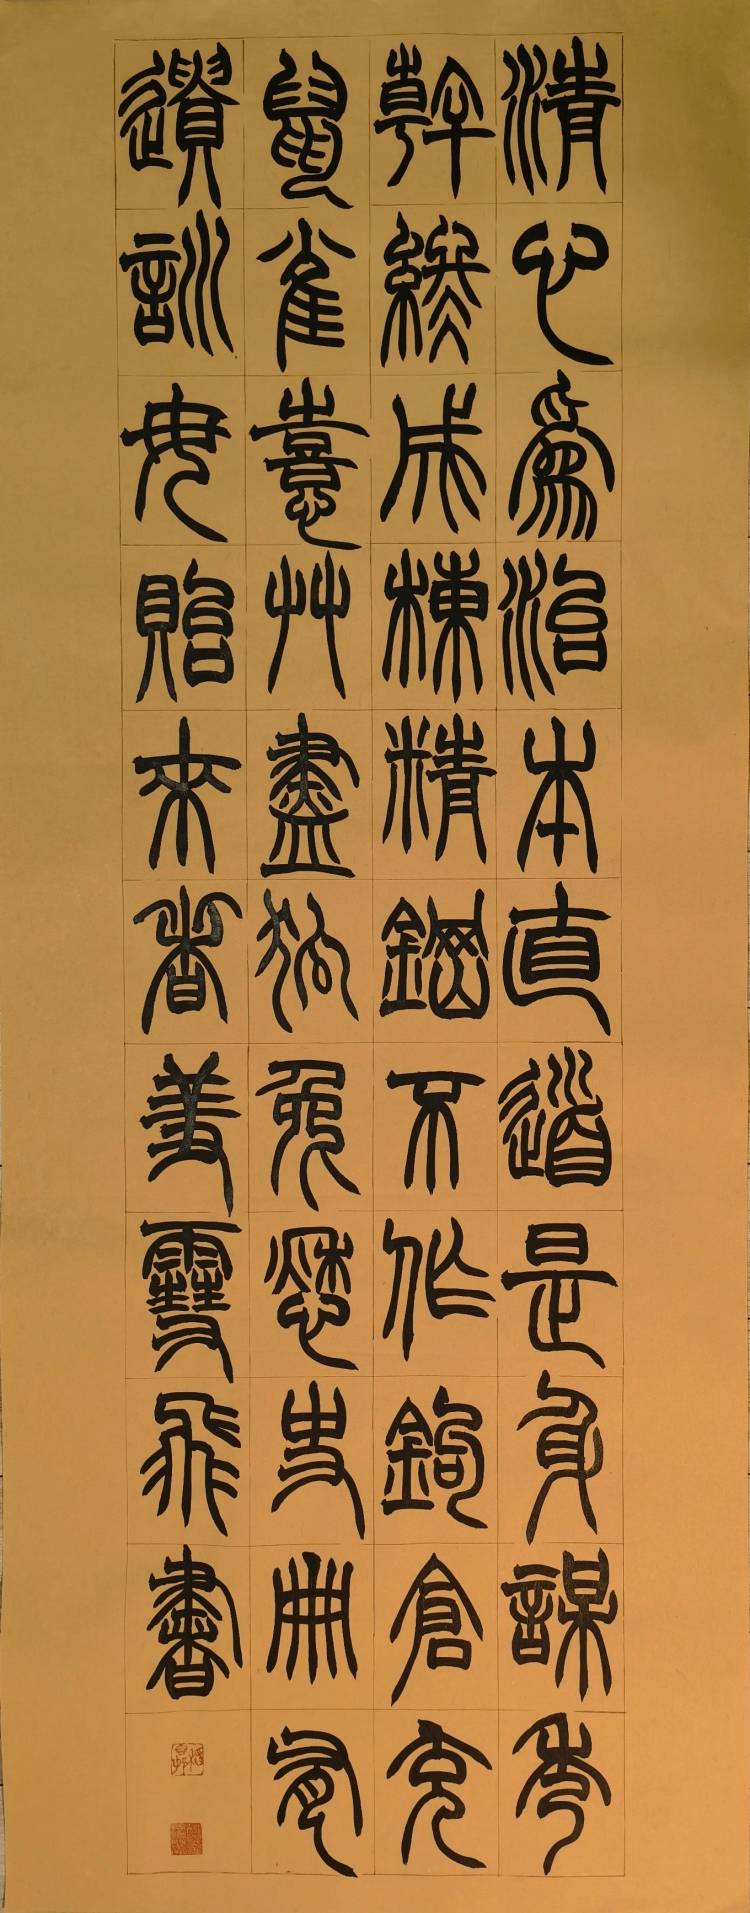 清心為治本直道是身謀秀
幹終成棟精鋼不作鉤倉充
鼠雀憙艸盡狐兔愁史冊有
遺訓毋貽來者羞雪飛書